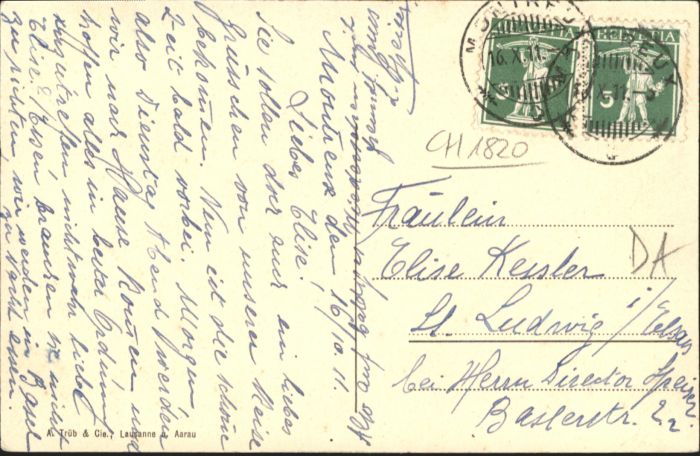 Montreux den 16/10.11.
Liebe Elise!
Sie sollen doch auch ein liebes
Grüsschen von unserer Reise
bekommen. Nun ist die schöne
Zeit bald vorbei, Morgen
also Dienstag Abend werden
wir nach Hause kommen und
hoffen alles in bester Ordnung
anzutreffen nicht wahr liebe
Elise!
zu richten, wir werden in Basel
zu Nacht essen.
HELVETIA
HELVETIA
5
MONTREUX
16.X.11.
CH 1820
DA
Fräulein
Elise Kessler
St. Ludwig i/Elsass
bei Herrn Director Speiser
Baslerstr. 22.
A. Trüb & Cie., Lausanne u. Aarau